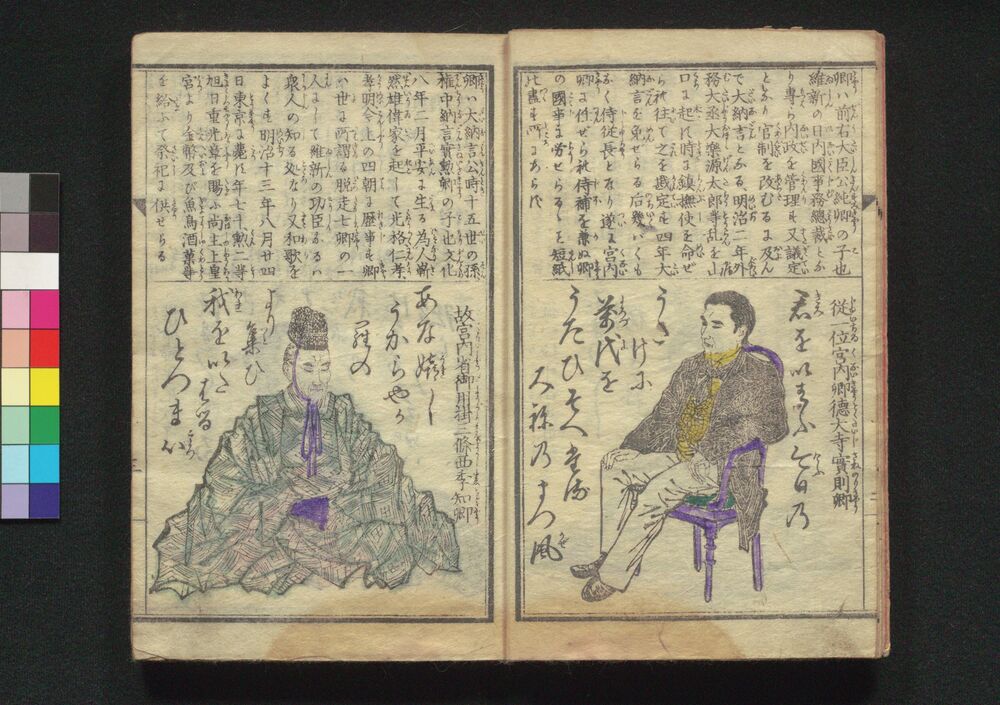 卿ハ前右大臣公純卿の子也
維新の日内國事務総裁とな
り専ら内政を管理す又議定
となり官制を改むるに及ん
で大納言となる、明治二年外
務大丞大樂源太郎等乱を山
口に起すに時に鎮撫使を命せ
られ往て之を戡定す四年大
納言を免せらる后幾いくも
なく侍従長となり遂に宮内
卿に任せられ侍補を兼ぬ卿
の國事に労せらるゝを短紙
此書の
従一位宮内卿德大寺實則卿
君を以ま
ふ今日の
うたけに
萬代を
うたひそへたる
久祢のまつ風
卿ハ大納言公時十五世の孫
権中納言實勲卿の子也文化
八年二月平安に生る為人嶄
然雄偉家を起して光格仁孝
孝明今上の四朝に歴事す卿
ハ世に所謂る脱走七卿の一
人にして維新の功臣なるハ
衆人の知る処なり又和歌を
よくす明治十三年八月廿四
日東京に薨す年七十勲二等
旭日重光章を賜ふ尚主上皇
宮より金幣及び魚鳥酒菓等
を給ふて祭祀に供せらる
故宮内省御用掛三條西季知卿
あな嬉し
うからやから
の
より集ひ
我を以
ひとつ